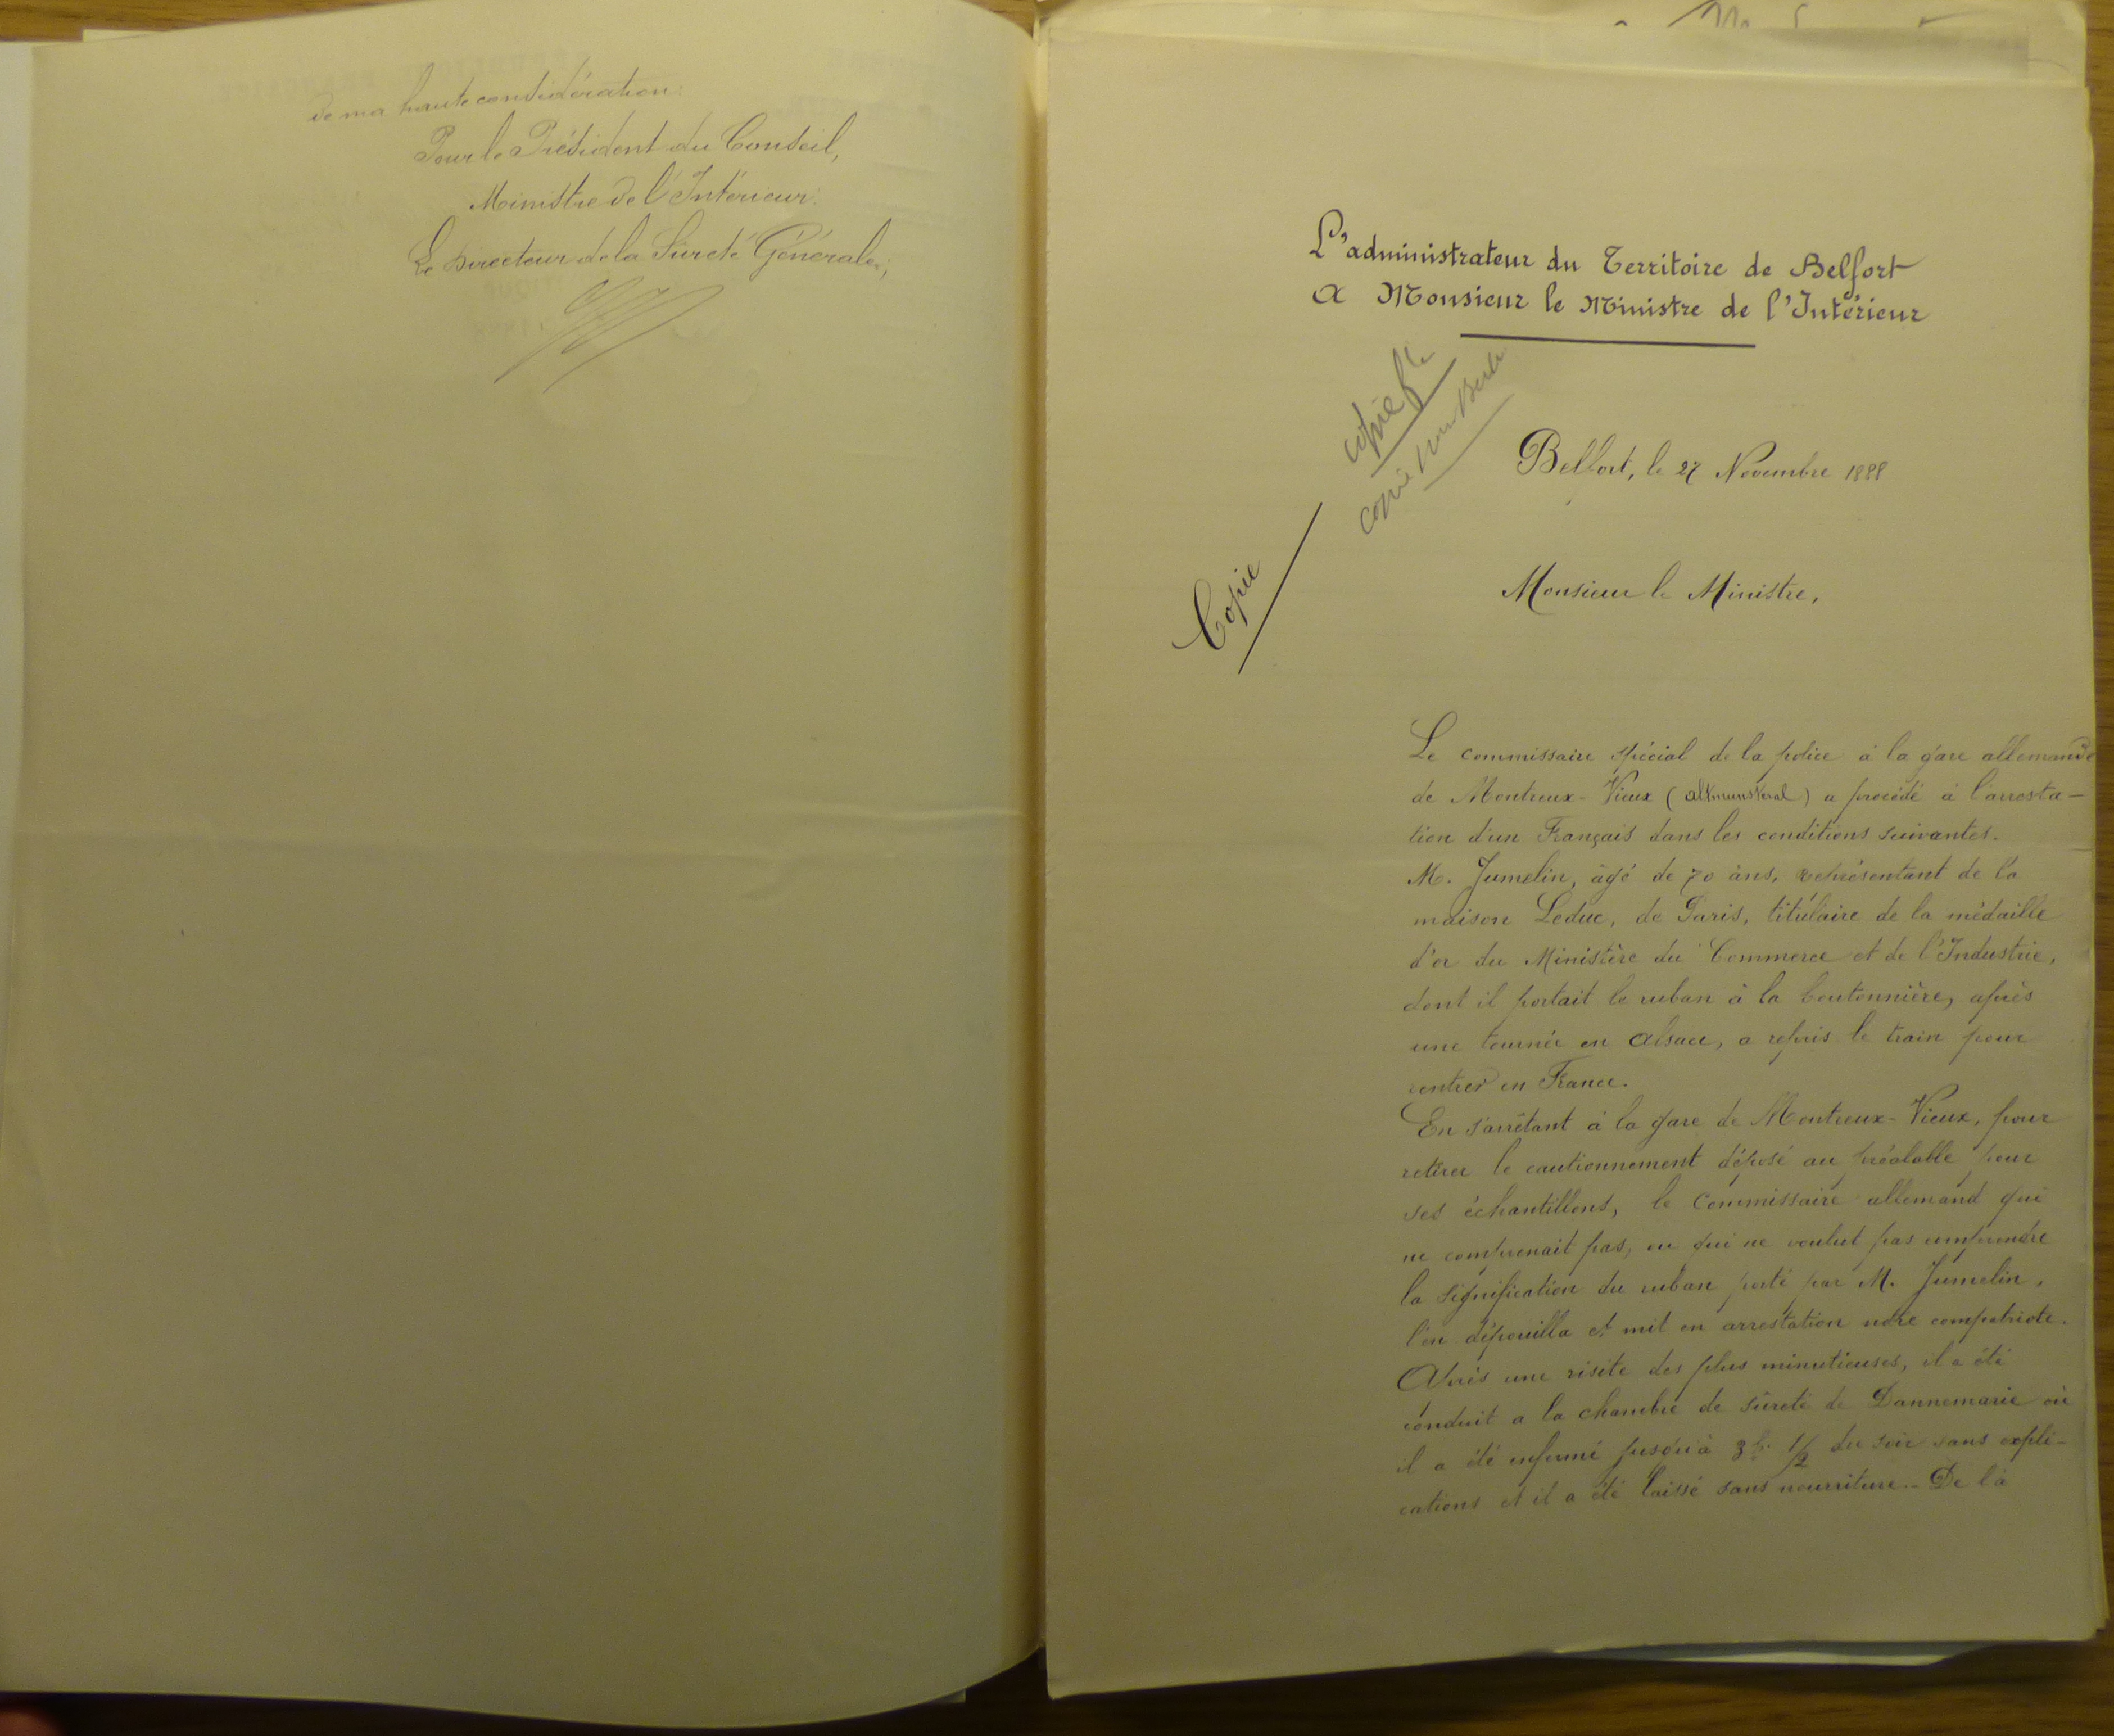 de ma haute considération:
Pour le Président du Conseil,
Ministre de l'Intérieur:
Le Directeur de la Sureté Générale;
L'administrateur du Territoire de Belfort
A Monsieur le Ministre de l'Intérieur
copie
copie pour
Belfort, le 27 Novembre 1888
Copie
Monsieur le Ministre,
Le commissaire spécial de la police à la gare allemande
de Montreux-Vieux (Altmunsteral) a procédé à l'arresta-
tion d'un Français dans les conditions suivantes.
M. Jumelin, âgé de 70 ans, représentant de la
maison Leduc, de Paris, titulaire de la médaille
d'or du Ministère du Commerce et de l'Industrie,
dont il portait le ruban à la boutonnière, après
une tournée en Alsace, a repris le train pour
rentrer en France.
En s'arrêtant à la gare de Montreux-Vieux, pour
retirer le cautionnement déposé au préalable pour
ses échantillons, le commissaire allemand qui
ne comprenait pas, ou qui ne voulut pas comprendre
la signification du ruban porté par M. Jumelin,
l'en dépouilla et mit en arrestation notre compatriote.
Après une visite des plus minutieuses, il a été
conduit a la chambre de sûreté de Dannemarie où
il a été enfermé jusqu'à 3 h. 1/2 du soir sans expli-
cations et il a été laissé sans nourriture. - De là